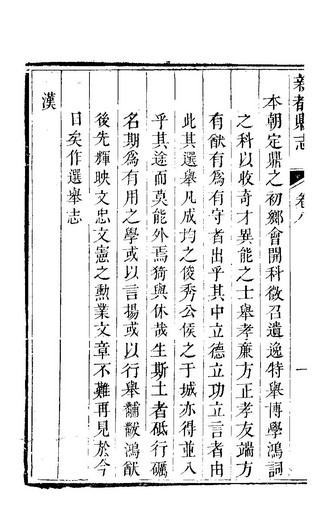 新都縣志 卷八 一
本朝定鼎之初鄉會開科徵召遺逸特舉博學鴻詞
之科以收奇才異能之士舉孝廉方正孝友端方
有猷有為有守者出乎其中立德立功立言者由
此其選舉凡成均之俊秀公侯之干城亦得並入
乎其途而莫能外焉猗與休哉生斯土者砥行礪
名期為有用之學或以言揚或以行舉黼黻鴻猷
後先輝映文忠文憲之勳業文章不難再見於今
日矣作選舉志
漢